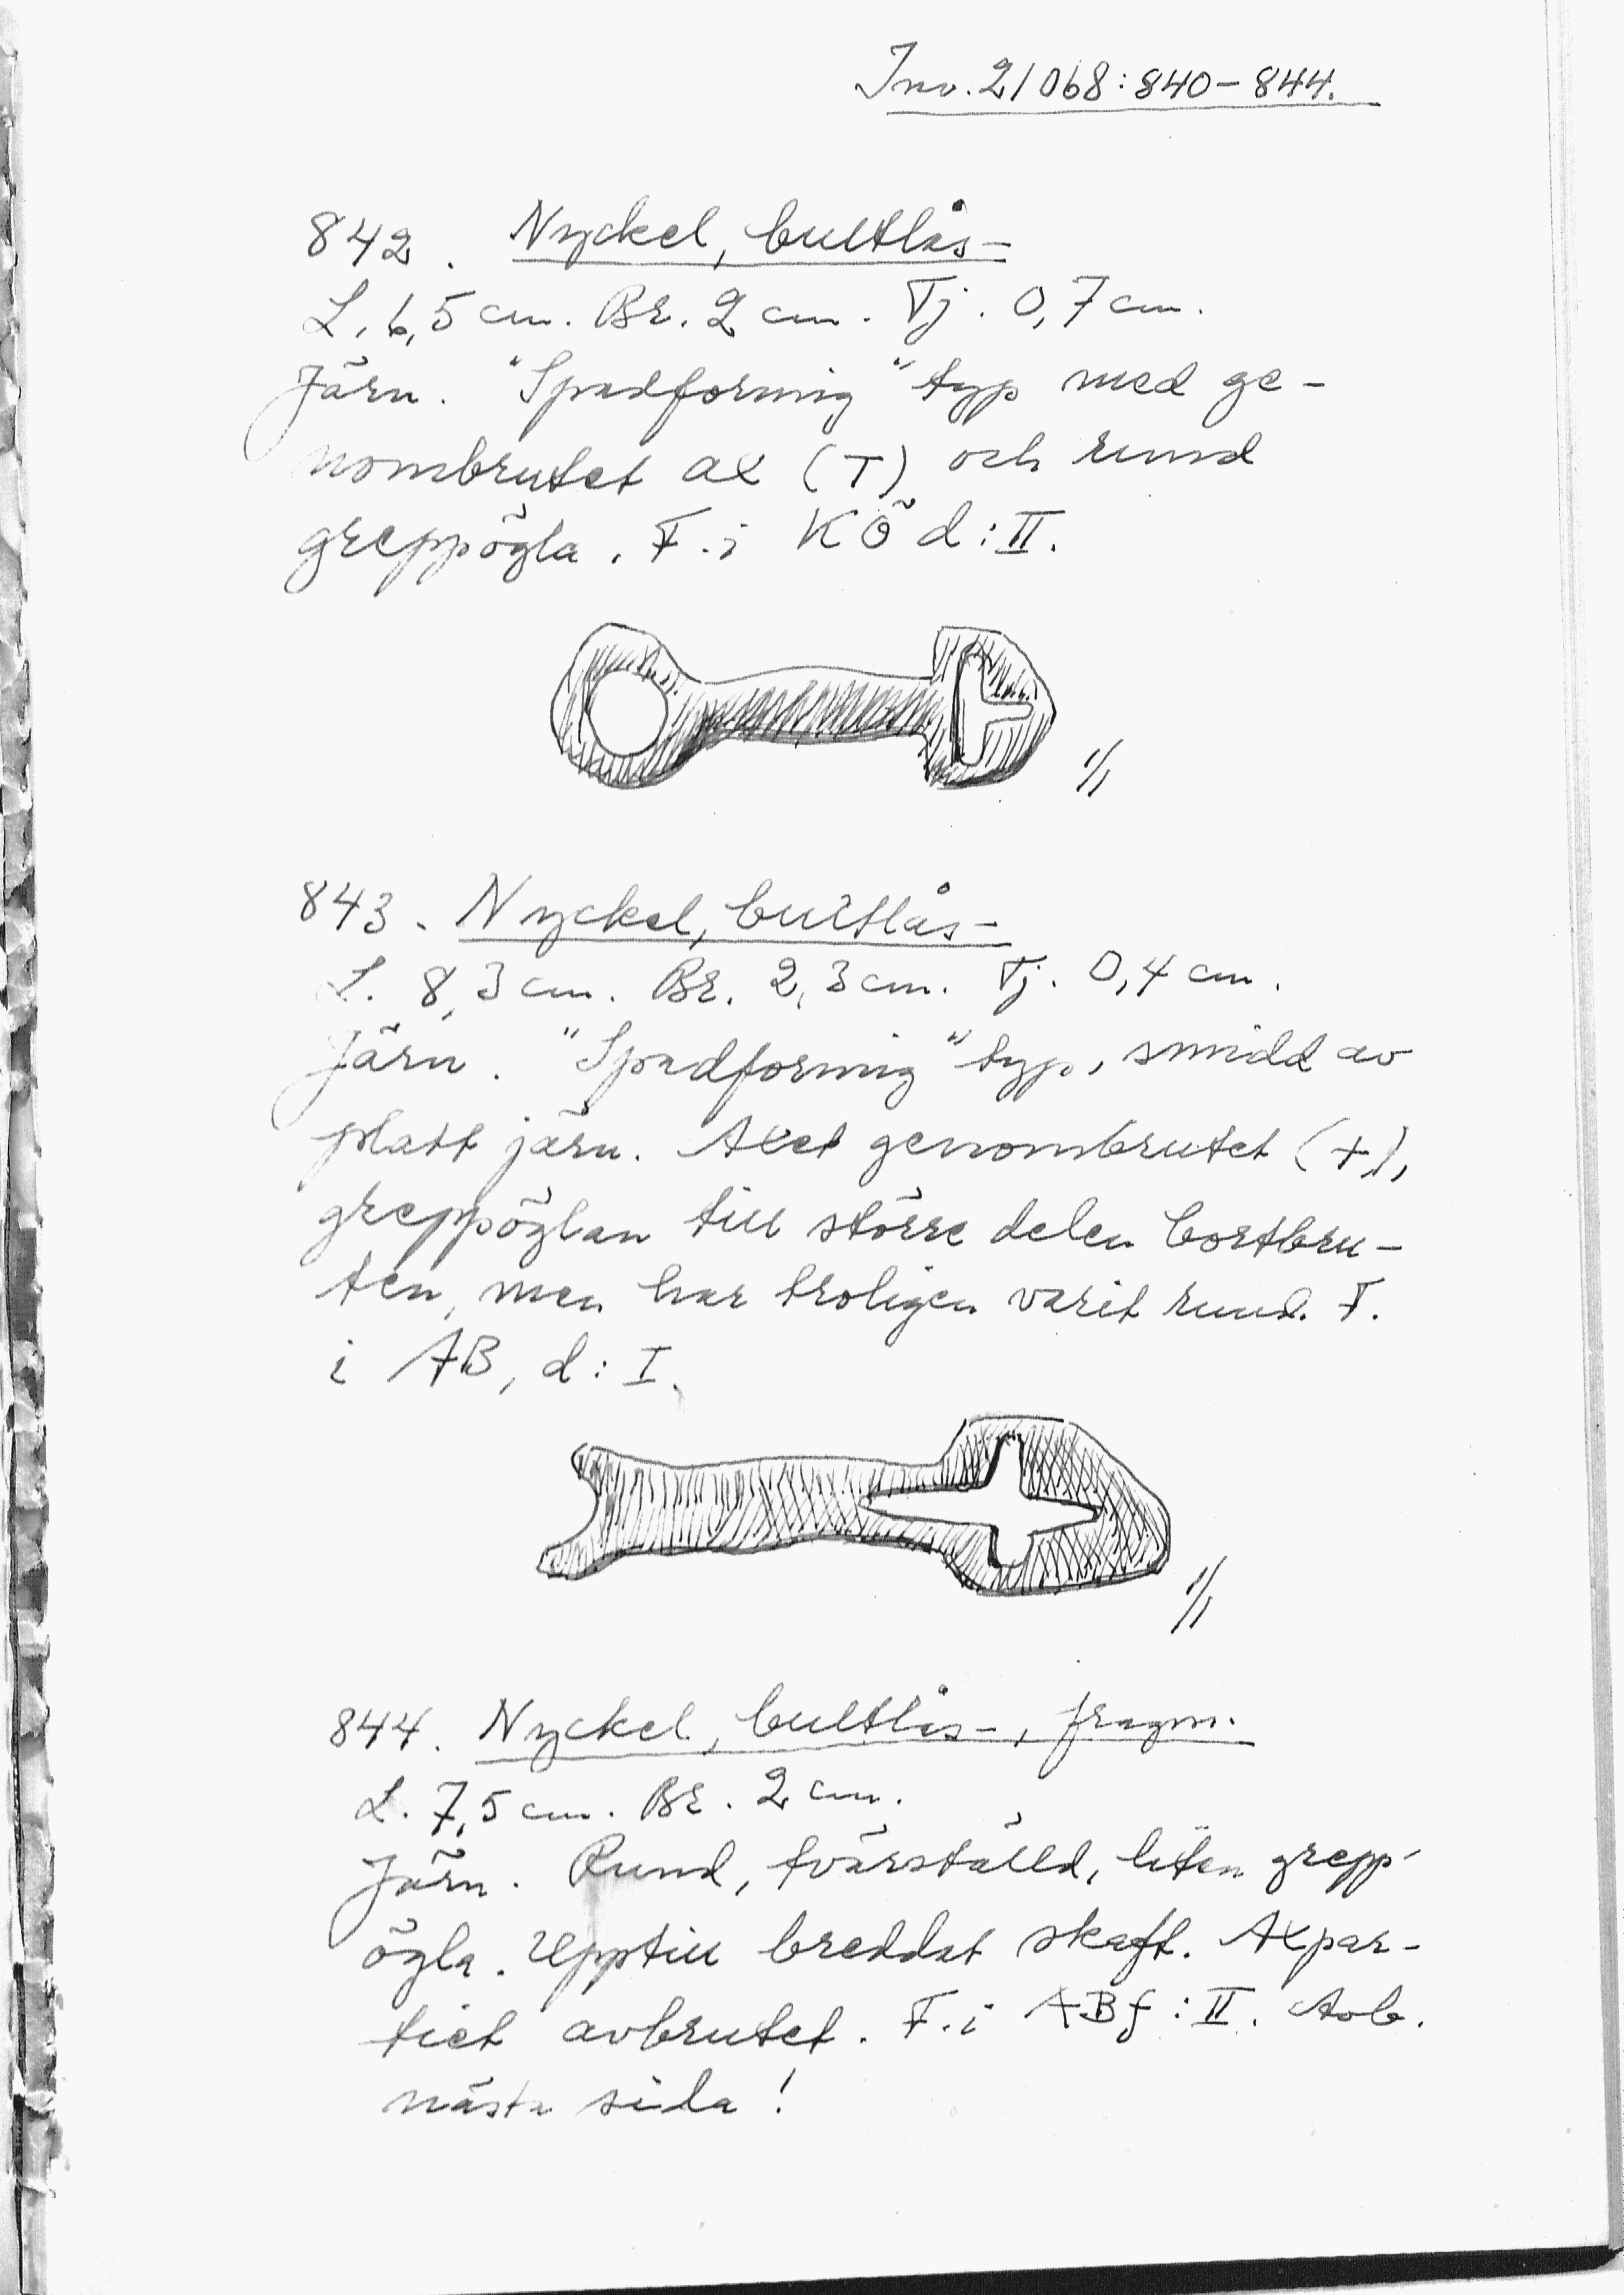 Inv. 21068:840-844.
842. Nyckel, bultlås-
L. 6,5 cm. Br. 2 cm. Tj. 0,7 cm.
Järn. "Spadformig" typ med ge-
nombrutet ax (T) och rund
greppögla. F. i KÖ d:II.
1/1
843. Nyckel, bultlås-
L. 8,3 cm. Br. 2,3 cm. Tj. 0,4 cm.
Järn. "Spadformig" typ, smidd av
platt järn. Axet genombrutet (+),
greppöglan till större delen bortbru-
ten, men har troligen varit rund. F.
i AB, d:I.
1/1
844. Nyckel, bultlås-, fragm.
L. 7,5 cm. Br. 2 cm.
Järn. Rund, tvärställd, liten grepp-
ögla. Upptill breddat skaft. Axpar-
tiet avbrutet. F. i ABf:II. Avb.
nästa sida!